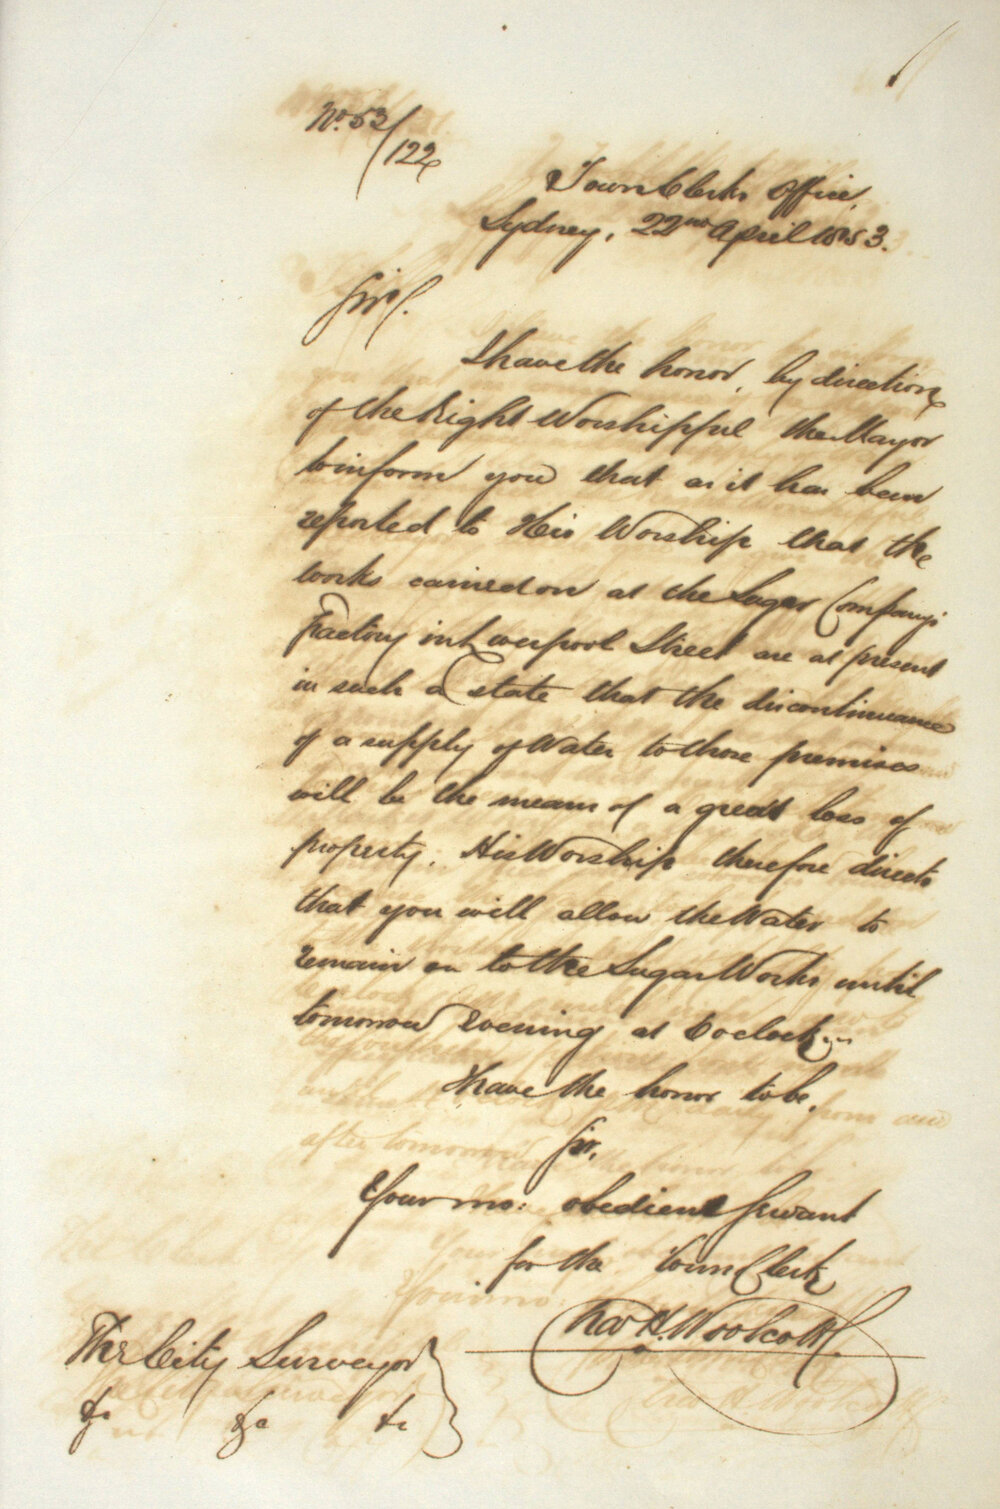 No. 53/122
Town Clerks Office,
Sydney, 22nd April 1853.
Sir,
I have the honor, by direction
of the Right Worshipful the Mayor
to inform you that as it has been
reported to His Worship that the
works carried on at the Sugar Company's
Factory in Liverpool Street are at present
in such a state that the discontinuance
of a supply of Water to those premises
will be the means of a great loss of
property, His Worship therefore directs
that you will allow the Water to
remain on to the Sugar Works until
tomorrow Evening at 6 oclock.
I have the honor to be,
Sir,
Your mo: obedient Servant
for the Town Clerk
Chas H. Woolcott
The City Surveyor
&c &c &c